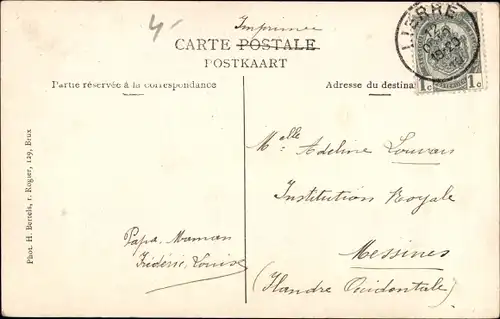 4-
Imprimé
CARTE POSTALE
POSTKAART
LIERRE
1c 1c
Partie réservée à la correspondance
Adresse du destina
Melle Adeline Louvais
Institution Royale
Messines
(Flandre Occidentale)
Papa, Maman
Frédéric, Louise
Phot. H. Bertels, r. Rogier, 129, Brux